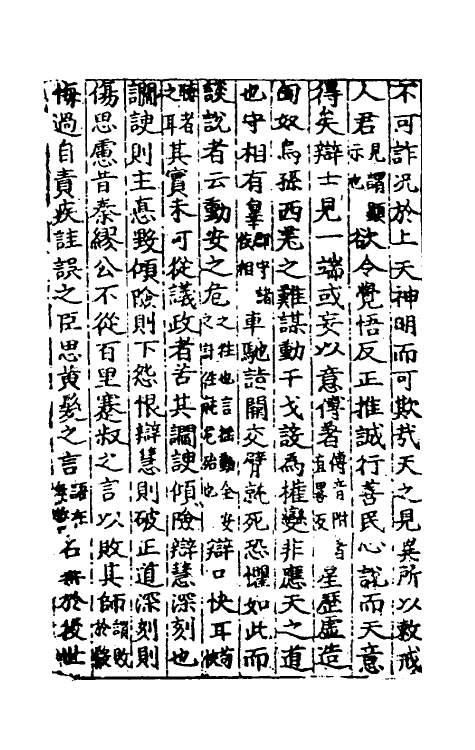 不可詐況於上天神明而可欺哉天之見異所以敕戒
人君見謂顯示也欲令覺悟反正推誠行善民心說而天意
得矣辯士見一端或妄以意傅著傅音附著音直畧反星歷虛造
匈奴烏孫西羌之難謀動干戈設為權變非應天之道
也守相有辠即守諸侯相車馳詣闕交臂就死恐懼如此而
談說者云動安之危之往也言搖動全安之計往就危殆也辯口快耳苟
聽者之耳其實未可從議政者苦其讇諛傾險辯慧深刻也
讇諛則主惪毀傾險則下怨恨辯慧則破正道深刻則
傷思慮昔秦繆公不從百里蹇叔之言以敗其師謂敗於殽
悔過自責疾詿誤之臣思黄髮之言名於後世